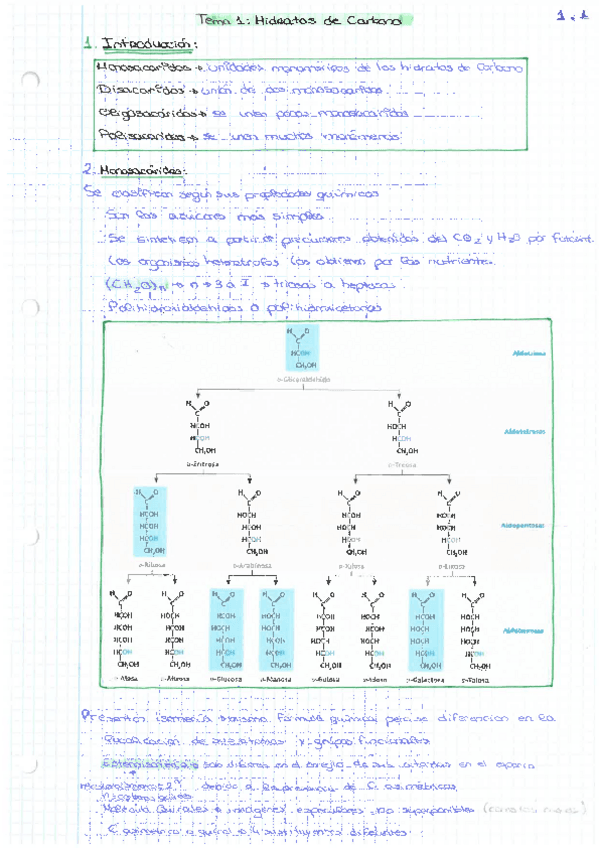 Tema 1: Hidratos de Carbono
1.1
1. Introducción:
Monosacáridos → unidades monoméricas de los hidratos de Carbono
Disacáridos → unión de dos monosacáridos
Oligosacáridos → se unen pocos monosacáridos
Polisacáridos → se unen muchos monómeros
2. Monosacáridos:
Se clasifican según sus propiedades químicas
Son los azúcares más simples
Se sintetizan a partir de precursores obtenidos del CO2 y H2O por fotosint.
Los organismos heterótrofos los obtienen por los nutrientes
(CH2O)n → n → 3 a 7 → triosas a heptosas
Polihidroxialdehídos o polihidroxicetonas
Aldotriosa
D-Gliceraldehído
Aldotetrosas
D-Eritrosa D-Treosa
Aldopentosas
D-Ribosa D-Arabinosa D-Xilosa D-Lixosa
Aldohexosas
D-Alosa D-Altrosa D-Glucosa D-Manosa D-Gulosa D-Idosa D-Galactosa D-Talosa
Presentan isomería misma fórmula química pero se diferencian en la
localización de sus átomos y grupos funcionales
solo difieren en el arreglo de sus átomos en el espacio
debido a la presencia de C asimétricos
Molécula Quirales → imágenes especulares no superponibles
C asimétrico o quiral → 4 sustituyentes diferentes